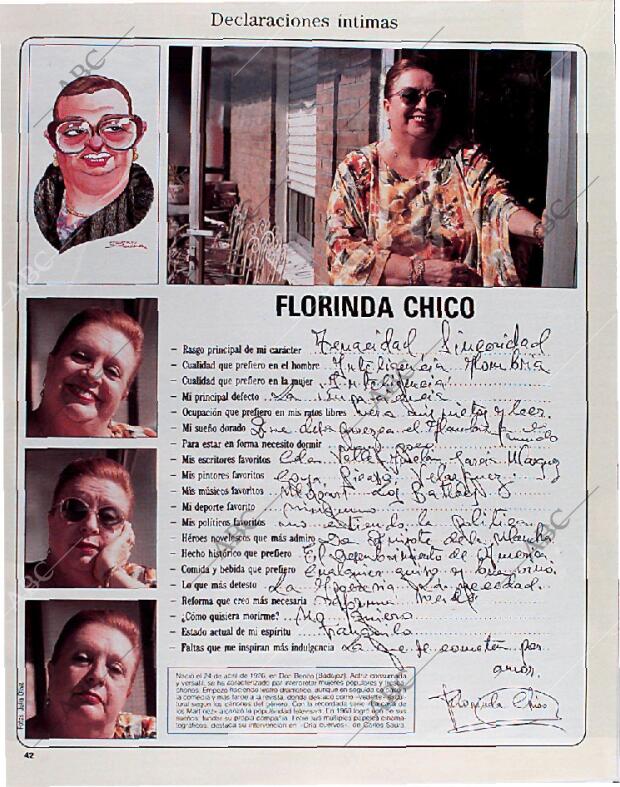 Declaraciones íntimas
FLORINDA CHICO
– Rasgo principal de mi carácter Tenacidad, Sinceridad
– Cualidad que prefiero en el hombre Inteligencia Hombría
– Cualidad que prefiero en la mujer Inteligencia
– Mi principal defecto La
– Ocupación que prefiero en mis ratos libres ver a mis nietos y leer.
– Mi sueño dorado Que desaparezca el Hambre en el mundo
– Para estar en forma necesito dormir muy poco
– Mis escritores favoritos Cela Valle García Márquez
– Mis pintores favoritos Goya Picasso Velázquez
– Mis músicos favoritos Mozart Los Beatles
– Mi deporte favorito ninguno
– Mis políticos favoritos no entiendo la política
– Héroes novelescos que más admiro Don Quijote de la Mancha
– Hecho histórico que prefiero El Descubrimiento de America
– Comida y bebida que prefiero Cualquier guiso y buen vino.
– Lo que más detesto La Hipocresía
– Reforma que creo más necesaria
– ¿Cómo quisiera morirme? No quiero
– Estado actual de mi espíritu Tranquilo
– Faltas que me inspiran más indulgencia La que se cometen por
amor.
Nació el 24 de abril de 1926, en Don Benito (Badajoz). Actriz consumada
y versátil, se ha caracterizado por interpretar mujeres populares y
Empezó haciendo teatro dramático, aunque en seguida
a la comedia y más tarde a la revista, donde destacó como
según los cánones del género. Con la recordada serie «La casa de
los Martínez» alcanzó la popularidad televisiva. En 1963 logró uno de sus
sueños: fundar su propia compañía. Entre sus múltiples papeles cinema-
tográficos, destaca su intervención en «Cría cuervos», de Carlos Saura.
Florinda Chico
Fotos: Julia Olivé
42
ABC